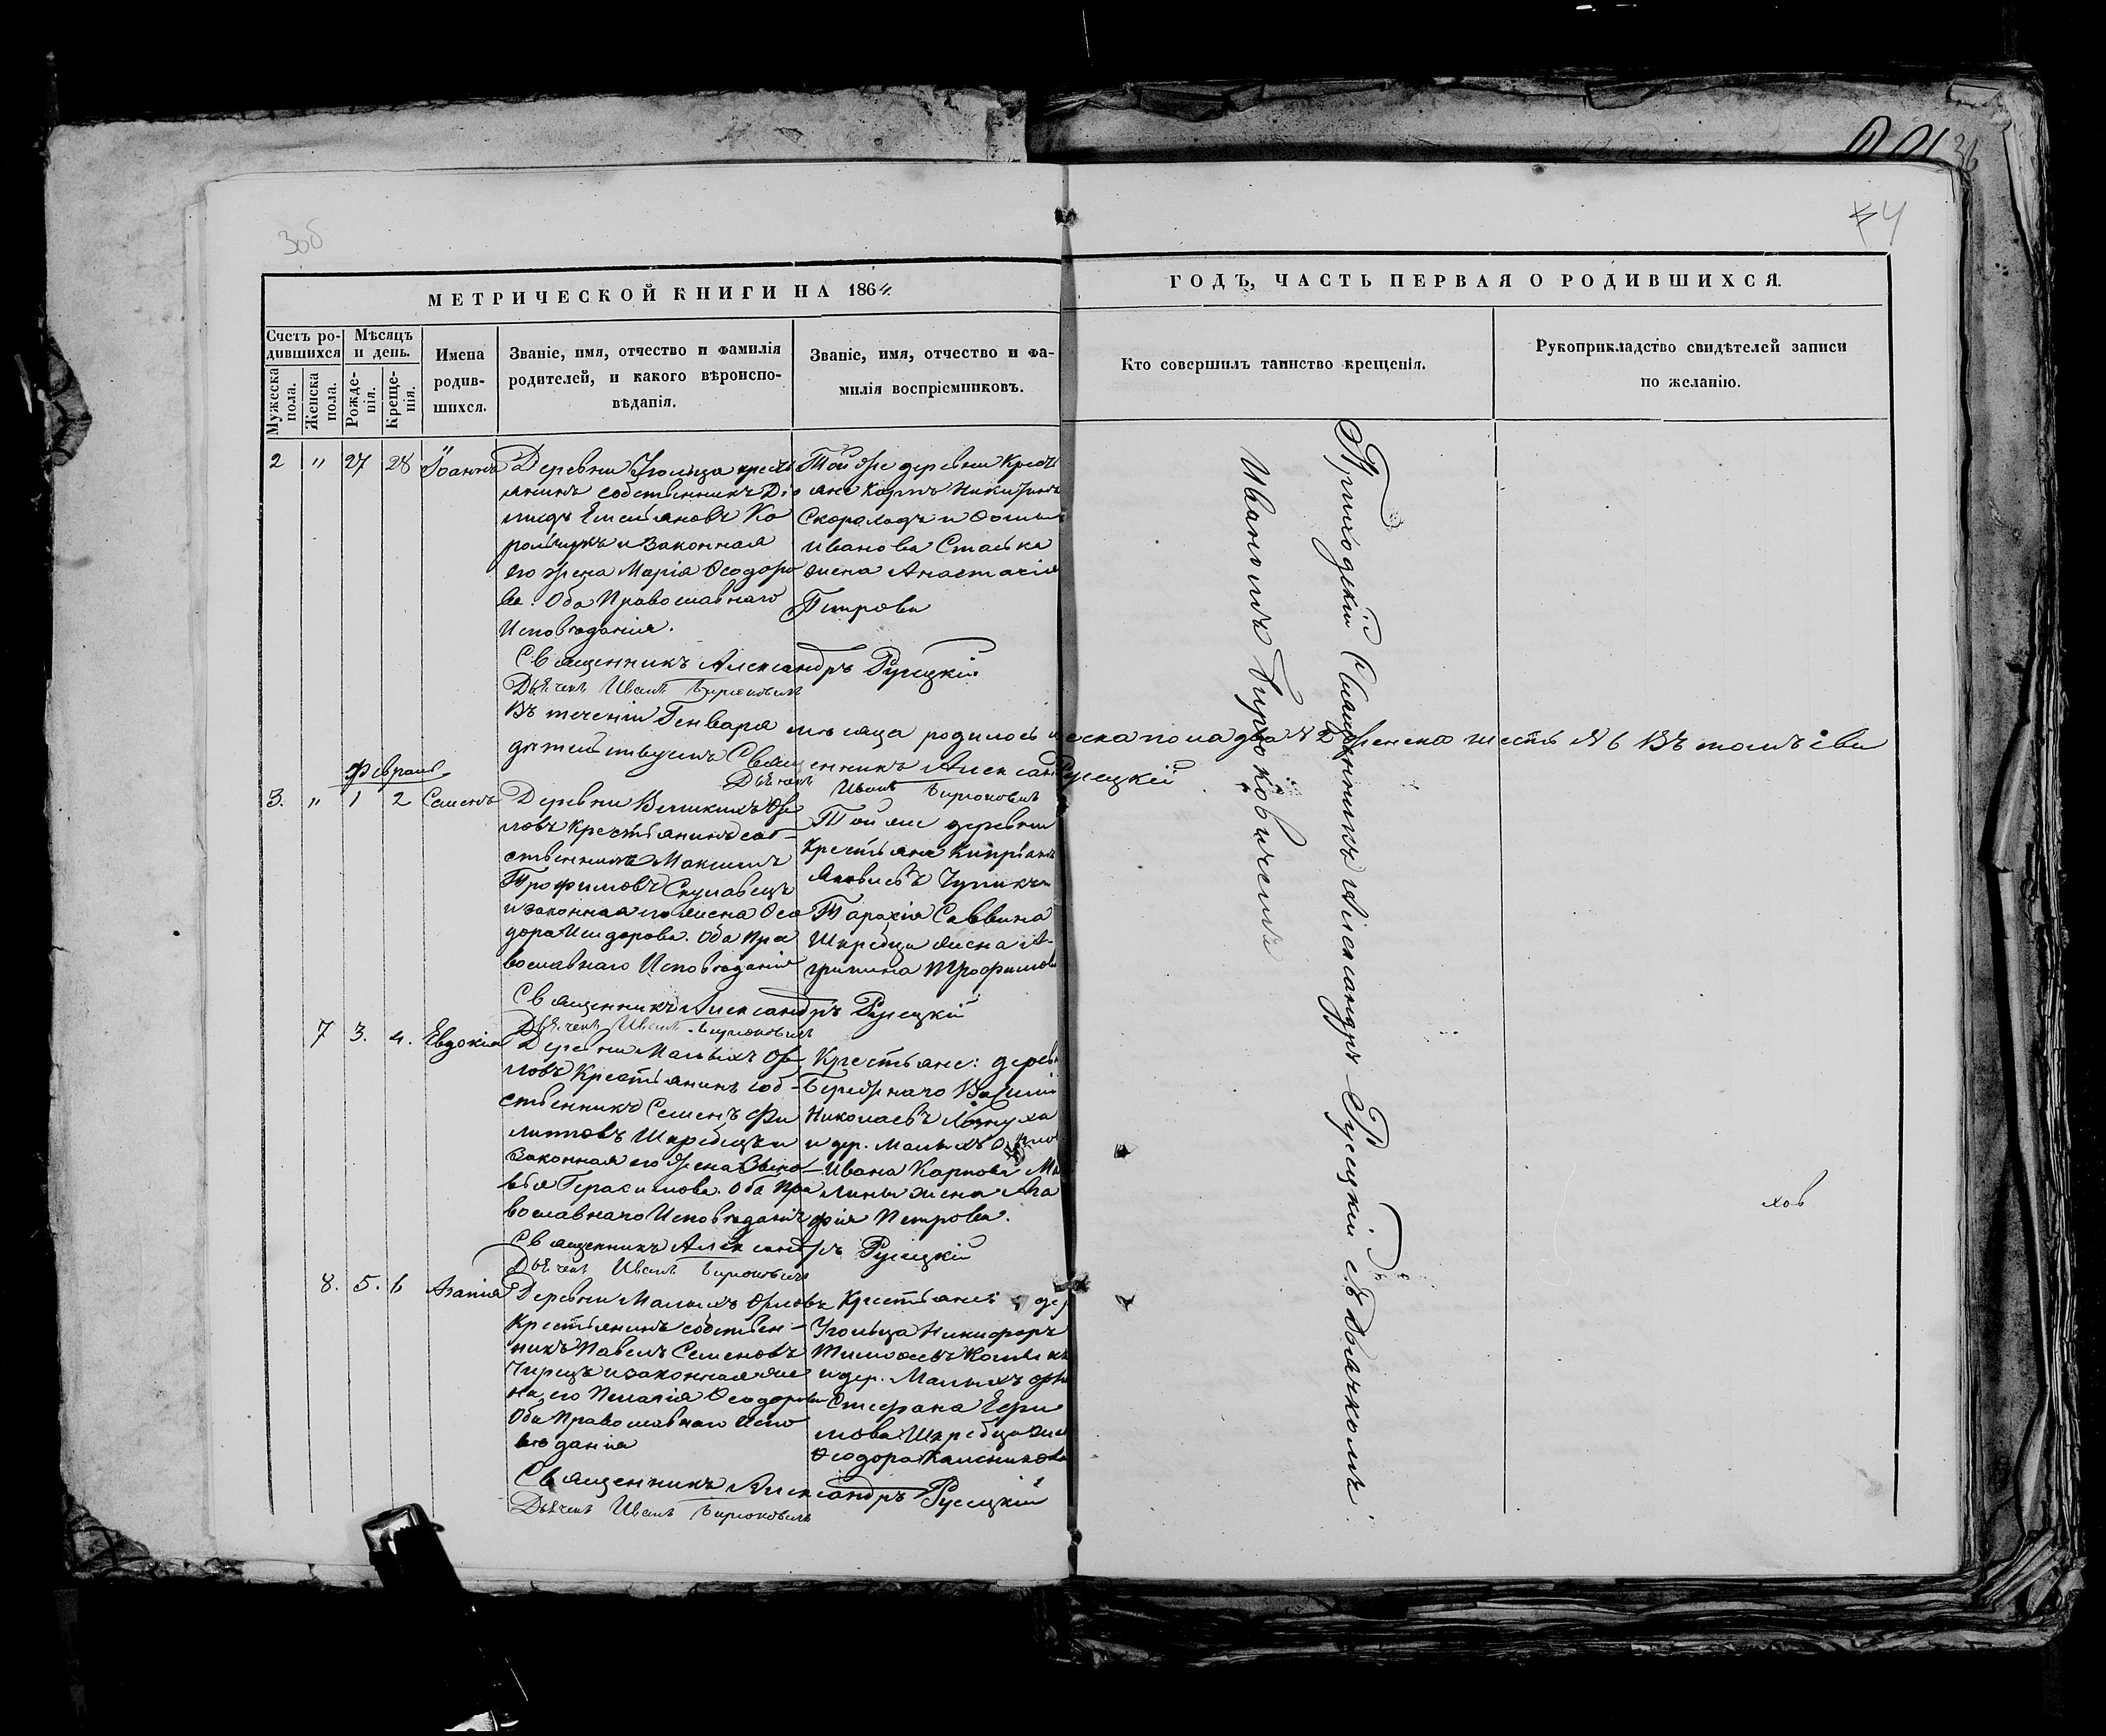 3об
4
МЕТРИЧЕСКОЙ КНИГИ НА 1864
ГОДЪ, ЧАСТЬ ПЕРВАЯ О РОДИВШИХСЯ.
Счетъ родившихся
Мужеска пола.
Женска пола.
Мѣсяцъ и день.
Рожденія.
Крещенія.
Имена родившихся.
Званіе, имя, отчество и фамилія
родителей, и какого вѣроиспо-
вѣданія.
Званіе, имя, отчество и фа-
милія воспріемниковъ.
Кто совершилъ таинство крещенія.
Рукоприкладство свидѣтелей записи
по желанію.
2 " 27 28 Іоаннъ
Деревни Угольца кресть
янинъ собственникъ Діо
мидъ Емельяновъ Ко
рольчукъ и законная
его жена Марія Ѳеодоро
ва. Оба Православнаго
Исповѣданія.
Той же деревни Кресть
яне Карпъ Никитинъ
Скороходъ и
Иванова Стаська
жена Анастасія
Петрова
Священникъ Александръ Русецкій
Дьячекъ Иванъ Бирюковичъ
Въ теченіи Генваря мѣсяца родилось мужеска пола два № 2 женска шесть № 6 Въ томъ сви
дѣтельствуемъ Священникъ Александръ Русецкій
Дьячекъ Иванъ Бирюковичъ
Февраль
3. " 1 2 Семенъ
Деревни Великихъ Ор
ловъ Крестьянинъ соб-
ственникъ Максимъ
Трофимовъ
и законная его жена Ѳео
дора Исидорова. Оба Пра
вославнаго Исповѣданія
Той же деревни
Крестьяне Кипріанъ
Яковлевъ
Тарасія Саввина
Шкребца жена А-
грипина Трофимова
Священникъ Александръ Русецкій
Дьячекъ Иванъ Бирюковичъ
7 3. 4. Евдокія
Деревни Малыхъ Ор
ловъ Крестьянинъ соб-
ственникъ Семенъ Фи
липповъ Шкребецъ и
законная его жена
Герасимова. Оба Пра
вославнаго Исповѣданія
Крестьяне: деревни
Бережнаго Василій
Николаевъ
и дер. Малыхъ Орловъ
Ивана Карпова
жена Ага
фія Петрова.
Священникъ Александръ Русецкій
Дьячекъ Иванъ Бирюковичъ
8. 5. 6 Агапія
Деревни Малыхъ Орловъ
Крестьянинъ собствен-
никъ Павелъ Семеновъ
и законная же
на его Пелагія Ѳеодорова
Оба Православнаго Испо
вѣданія
Крестьяне: дер
Угольца Никифоръ
Тимоѳеевъ
и дер. Малыхъ Орловъ
Стефана
Шкребца жена
Ѳеодора
Священникъ Александръ Русецкій
Дьячекъ Иванъ Бирюковичъ
Приходскій Священникъ Александръ Русецкій съ Дьячкомъ
Иваномъ Бирюковичемъ